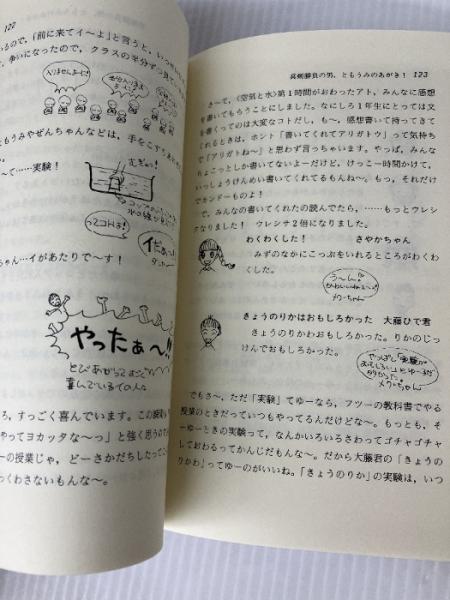 122
いるので,「前に来てイ～よ」と言うと,いっせい
争いになったので,クラスの半分ずつ見
ともうみやぜんちゃんなどは,手をこす
て……実験!
むぎゅ!
コップの
水の
ってコトは!
イだぁ～!!
ちゃん…イがあたりで～す!
やったぁ～!!
とびあがらんむごくに
喜んでいる子の人。
ろ,すっごく喜んでいます。この
やってヨカッタな～っ」と強く思うの
ーの授業じゃ,どーさかだちしたってこ
っくわさないもんな～。
真剣勝負の男,ともうみのあがき! 123
さ～て,〈空気と水〉第1時間がおわったアト,みんなに感想
を書いてもらうことにしました。なにしろ1年生にとっては文
を書くってのは大変なコトだし,も～,感想書いて持ってきて
くれるときは,ホント「書いてくれてアリガトウ」って気持ち
で「アリガトね～」と思わず言っちゃいます。やっぱ,みんな
ちょこっとしか書いてないよーだけど,けっこー時間かけて,
いっしょうけんめい書いてくれてるもんね～。もっ,それだけ
でカンドーものよ!
で,みんなの書いてくれたの読んでたら,……もっとウレシ
クなりました! ウレシサ2倍になりました。
わくわくした! さやかちゃん
みずのなかにこっぷをいれるところがわくわ
くした。
う～ん!
かわいいねぇ～
メリーちゃん
きょうのりかはおもしろかった 大藤ひで君
きょうのりかわおもしろかった。りかのじっ
けんでおもしろかった。
やっぱし「実験が
おもしろい」とゆーのが
わかった。
メリーちゃん
でもさ～,ただ「実験」てゆーなら,フツーの教科書でやる
授業のときだっていつもやってるんだけどな～。もっとも,そ
ーゆーときの実験って,なんかいろいろさわってゴチャゴチャ
しておわるってかんじだもんな～。だから大藤君の「きょうの
りかわ」ってゆーのがいいね。「きょうのりか」の実験は,いつ